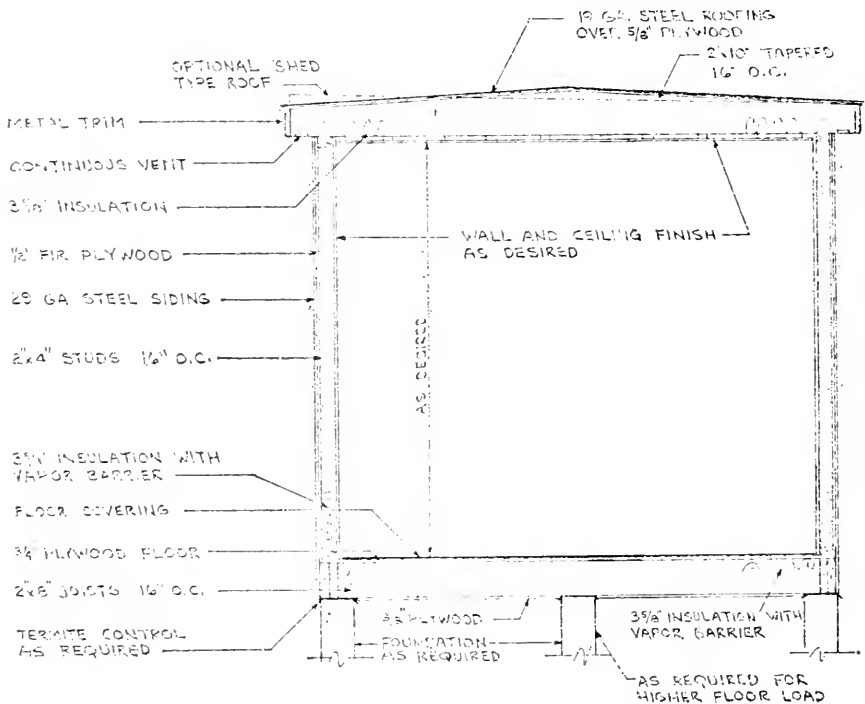 19 GA. STEEL ROOFING
OVER 5/8" PLYWOOD
2"x10" TAPERED
16" O.C.
OPTIONAL SHED
TYPE ROOF
METAL TRIM
CONTINUOUS VENT
3 5/8" INSULATION
WALL AND CEILING FINISH
AS DESIRED
1/2" FIR PLYWOOD
29 GA STEEL SIDING
2"x4" STUDS 16" O.C.
AS DESIRED
INSULATION WITH
VAPOR BARRIER
FLOOR COVERING
3/4" PLYWOOD FLOOR
2"x8" JOISTS 16" O.C.
TERMITE CONTROL
AS REQUIRED
3/8" PLYWOOD
FOUNDATION
AS REQUIRED
3 5/8" INSULATION WITH
VAPOR BARRIER
AS REQUIRED FOR
HIGHER FLOOR LOAD